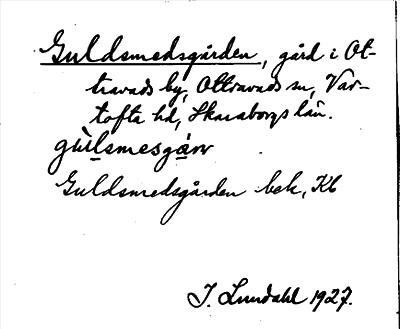 Guldsmedsgården, gård i Ot-
travads by, Ottravads sn, Var-
tofta hd, Skaraborgs län.
gùl̲smesgá̲ɴ
Guldsmedsgården bek, Kb
J. Lundahl 1927.